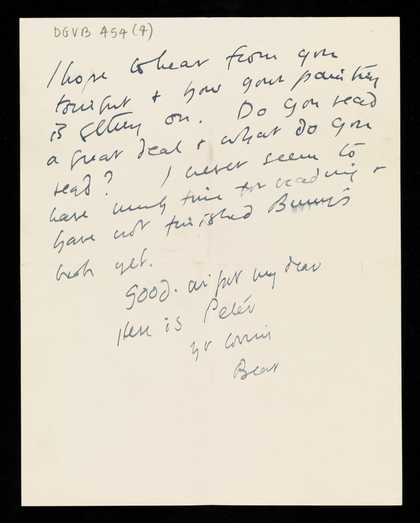 DGVB 454 (4)
I hope to hear from you
tonight & how your painting
is getting on. Do you read
a great deal & what do you
read? I never seem to
have much time for reading &
have not finished Bunny's
book yet.
Good-night my dear
Here is Peter
yr
Bear